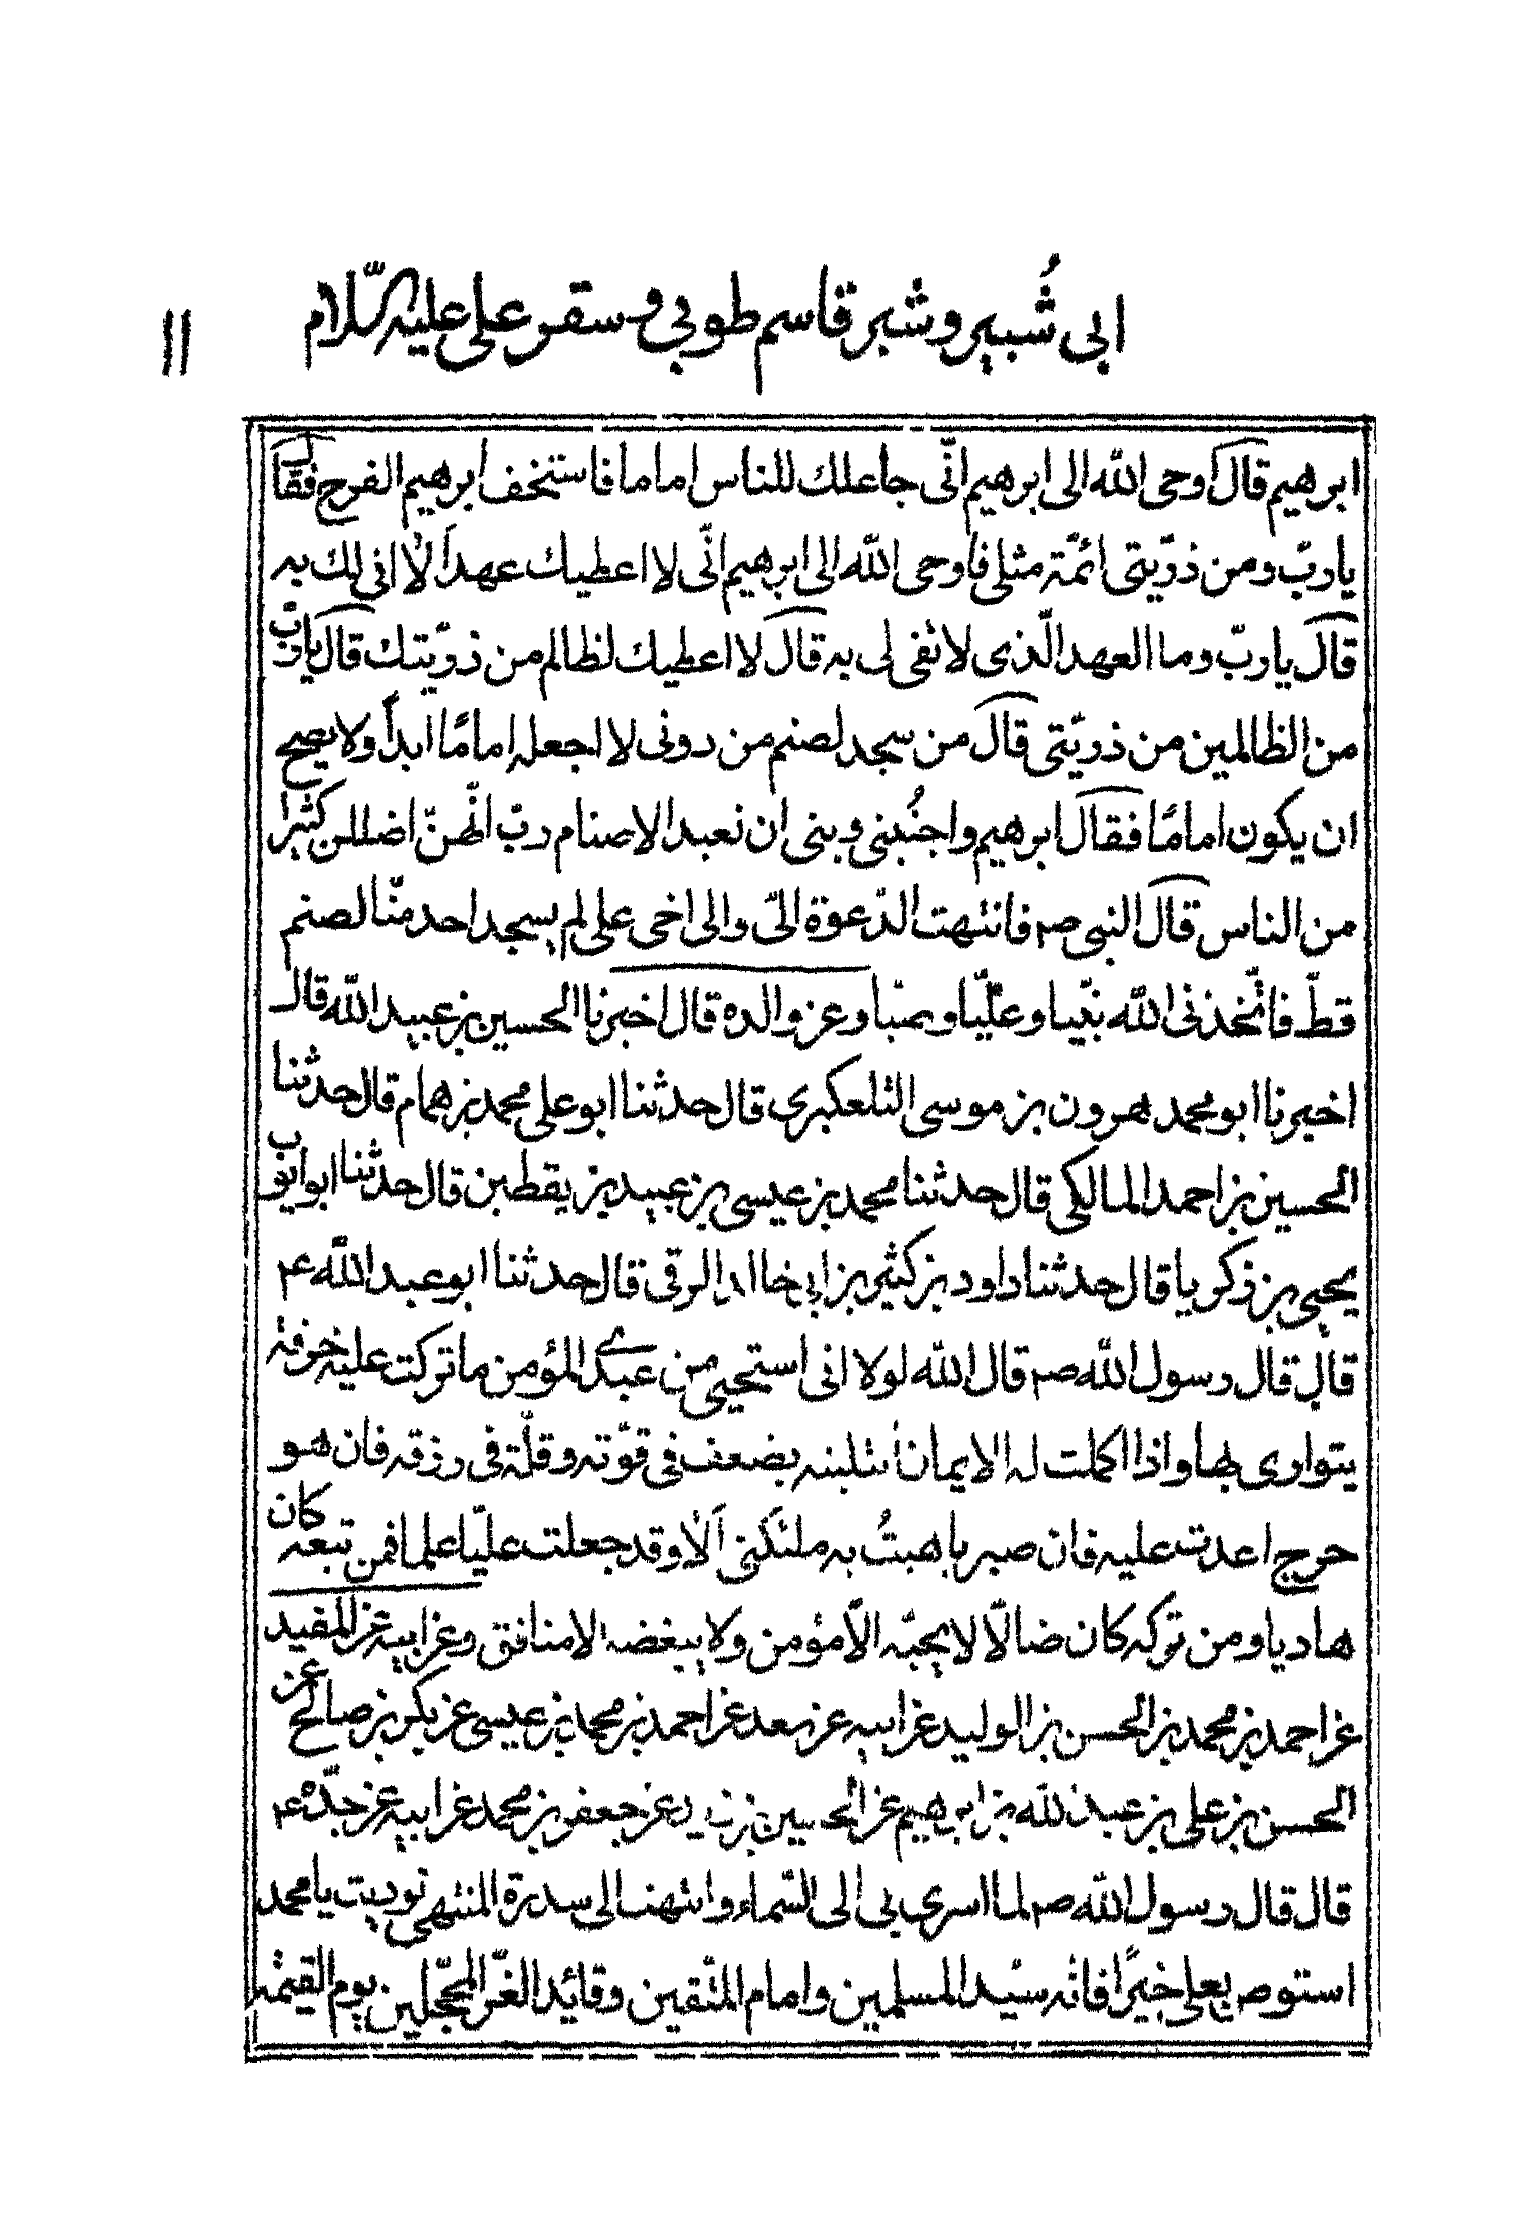 ابي شُبير وشبر قاسم طوبي وسقر علي عليه السّلام
١١
ابرهيم قال اوحى اللّه الى ابرهيم انّى جاعلك للناس اماما فاستخف ابرهيم الفرح فقال
يارب ومن ذرّيتى ائمّة مثلى فاوحى اللّه الى ابرهيم انّى لا اعطيك عهداً الا افى لك به
قال ياربّ وما العهد الّذى لا تفى لى به قال لا اعطيك لظالم من ذرّيتك قال يارب
من الظالمين من ذريّتى قال من سجد لصنم من دونى لا اجعله امامًا ابداً ولا يصح
ان يكون امامًا فقال ابرهيم واجنُبنى وبنى ان نعبد الاصنام ربّ انّهنّ اضللن كثيرا
من الناس قال النبى ص فانتهت الدّعوة الىّ والى اخى على لم يسجد احد منّا لصنم
قطّ فاتّخذنى اللّه نبيّا وعليّا وصيّا وعن والده قال اخبرنا الحسين بن عبيد اللّه قال
اخبرنا ابو محمد هرون بن موسى التلعكبرى قال حدثنا ابو على محمد بن همام قال حدثنا
الحسين بن احمد المالكى قال حدثنا محمد بن عيسى بن عبيد بن يقطين قال حدثنا ابو ايوب
يحيى بن زكريا قال حدثنا داود بن كثير بن ابى خالد الرقى قال حدثنا ابو عبد اللّه ع
قال قال رسول اللّه ص قال اللّه لولا انى استحيى من عبدى المؤمن ما تركت عليه خرقة
يتوارى بها واذا اكملت له الايمان ابتليته بضعف فى قوّته وقلّة فى رزقه فان هو
حرج اعدت عليه فان صبر باهيتُ به ملئكتى اَلا وقد جعلت عليّا علما فمن تبعه كان
هاديا ومن تركه كان ضالّا لا يحبّه الّا مؤمن ولا يبغضه الا منافق وعن ابيه عن المفيد
عن احمد بن محمد بن الحسن بن الوليد عن ابيه عن سعد عن احمد بن محمد بن عيسى عن بكر بن صالح عن
الحسن بن على بن عبد اللّه بن ابرهيم عن الحسين بن زيد عن جعفر بن محمد عن ابيه عن جدّه ع
قال قال رسول اللّه ص لما اسرى بى الى السّماء وانتهينا الى سدرة المنتهى نوديت يا محمد
استوص بعلى خيرًا فانّه سيّد المسلمين وامام المتّقين وقائد الغرّ المحجّلين يوم القيمة